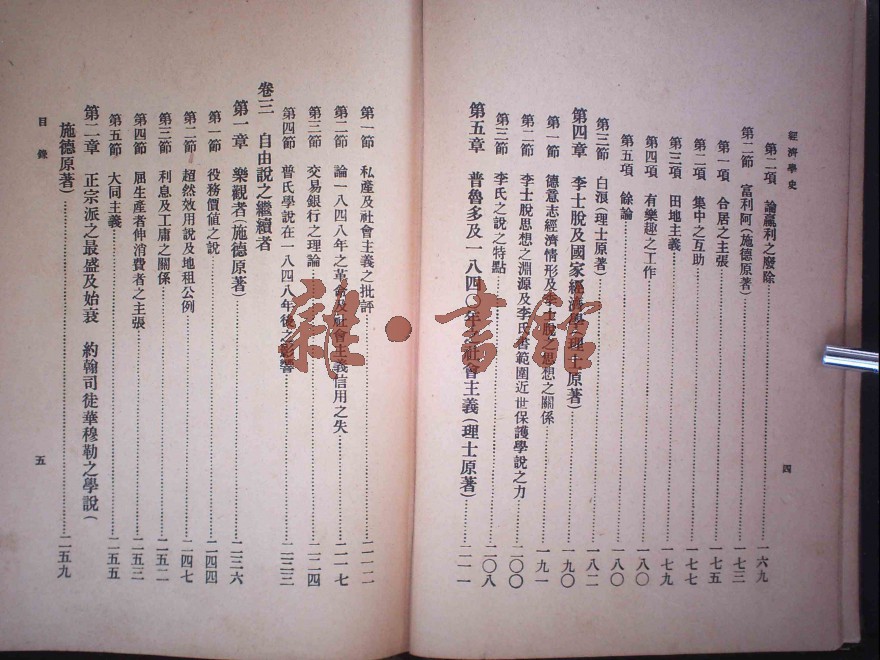 經濟學史
第二項 論贏利之廢除……一六九
第二節 富利阿（施德原著）……一七三
第一項 合居之主張……一七五
第二項 集中之互助……一七七
第三項 田地主義……一七九
第四項 有樂趣之工作……一八〇
第五項 餘論……一八〇
第三節 白浪（理士原著）……一八二
第四章 李士脫及國家經濟學（理士原著）……一九〇
第一節 德意志經濟情形及李士脫之思想之關係……一九一
第二節 李士脫思想之淵源及李氏書範圍近世保護學說之力……二〇〇
第三節 李氏之說之特點……二〇八
第五章 普魯多及一八四〇年之社會主義（理士原著）……二一一
四
第一節 私產及社會主義之批評……二一二
第二節 論一八四八年之革命及社會主義信用之失……二一七
第三節 交易銀行之理論……二二四
第四節 普氏學說在一八四八年後之影響……二三三
卷三 自由說之繼續者
第一章 樂觀者（施德原著）……二三六
第一節 役務價值之說……二四四
第二節 超然效用說及地租公例……二四七
第三節 利息及工庸之關係……二五二
第四節 屈生產者伸消費者之主張……二五五
第五節 大同主義……二五五
第二章 正宗派之最盛及始衰 約翰司徒華穆勒之學說（
施德原著）……二五九
目錄
五
雜·書館